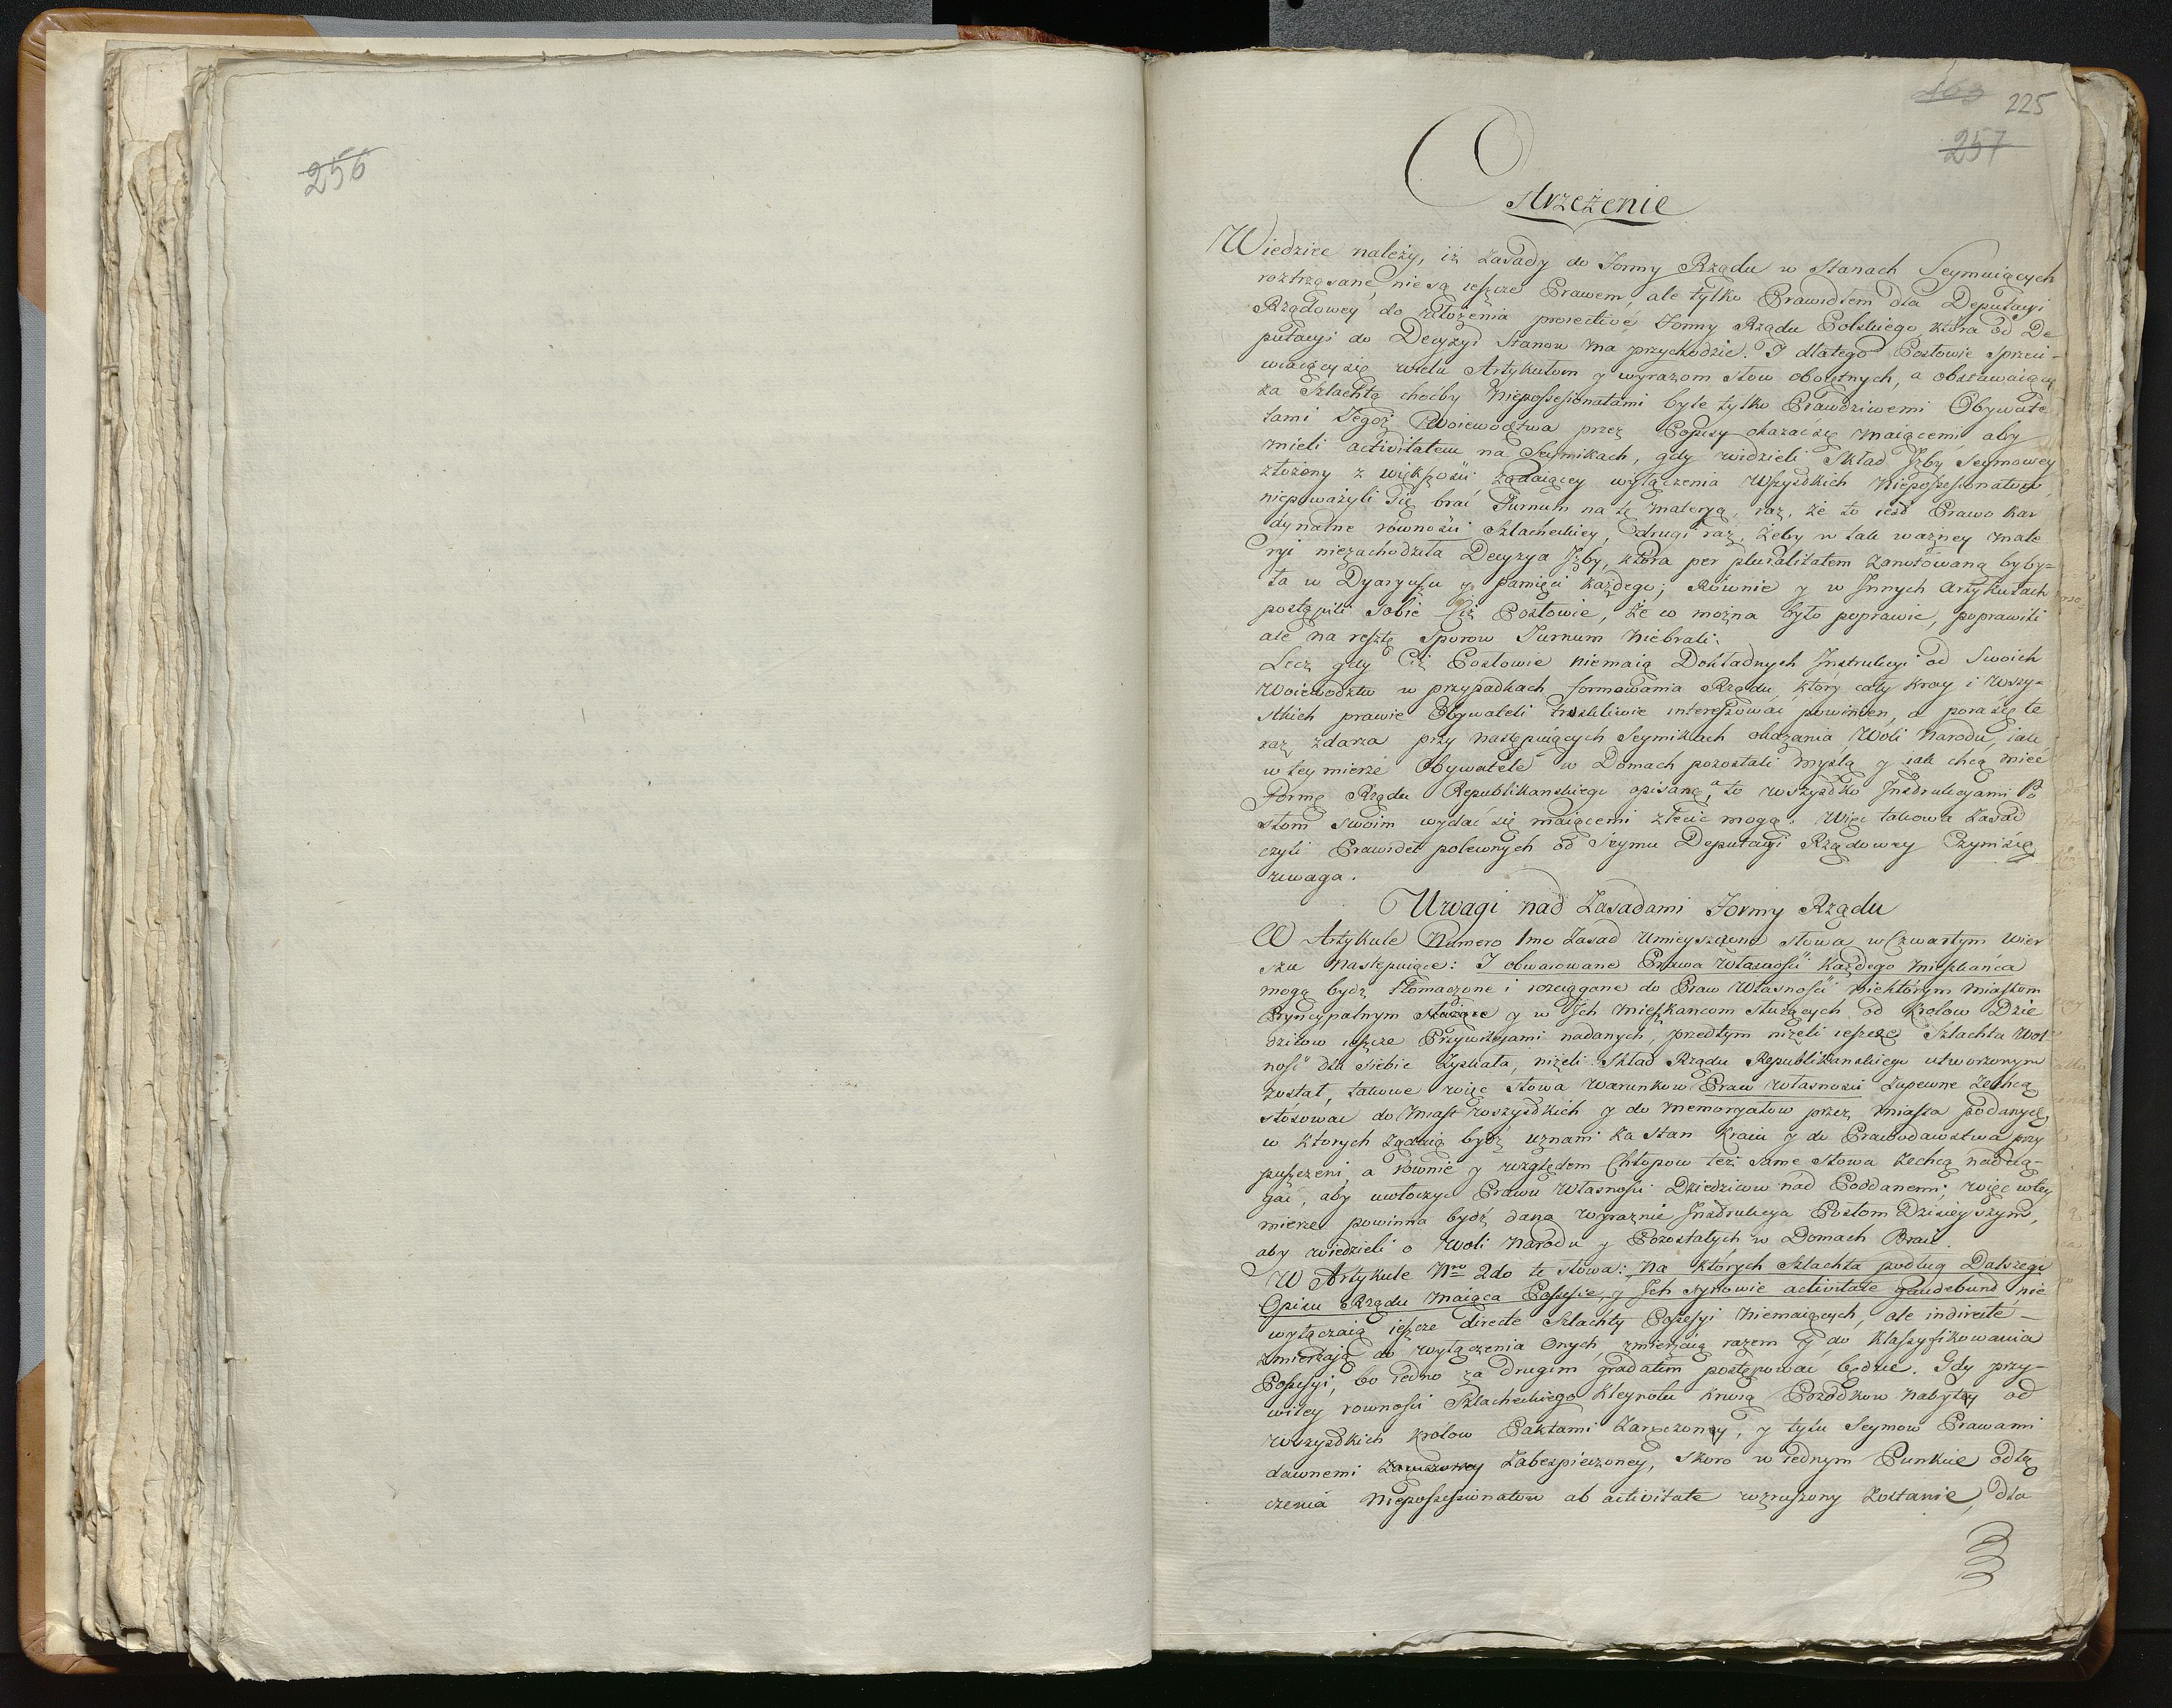 256
163 225
257
Ostrzeżenie
Wiedziec należy, iż Zasady do Formy Rządu w Stanach Seymuiących
roztrząsane, nie są ieszcze Prawem, ale tylko Prawidłem dla Deputacyi
Rządowey do ułożenia proiective Formy Rządu Polskiego, ktora od De
putacyi do Decyzyi Stanow ma przychodzic. I dlatego Posłowie sprzeci-
wiaiący się wielu Artykułom y wyrazom słow oboiętnych, a obstawaiący
za Szlachtą choćby Nieposesionatami byle tylko Prawdziwemi Obywate
lami Tegoż Woiewodztwa przez Popisy okazać się maiącemi, aby
mieli activitatem na Seymikach, gdy widzieli Skład Jzby Seymowey
złożony z większości żądaiącey wyłączenia Wszystkich Nieposesionatow,
niepoważyli się brać Turnum na tę materyą, raz, że to iest Prawo Kar
dynalne rowności Szlacheckiey, drugi raz, żeby w tak ważney mate
ryi niezachodziła Decyzya Jzby, ktora per pluralitatem zanotowaną byby-
ła w Dyaryuszu y pamięci każdego; Rownie y w Jnnych Artykułach
postąpili sobie Ciż Posłowie, że co można było poprawic, poprawili
ale na resztę Sporow Turnum niebrali.
Lecz gdy Ciż Posłowie niemaią Dokładnych Jnstrukcyi od Swoich
Woiewodztw w przypadkach formowania Rządu, ktory cały Kray i Wszy-
stkich prawie Obywateli troskliwie interessować powinien, a pora się te
raz zdarza przy następuiących Seymikach okazania Woli Narodu, iak
w tey mierze Obywatele w Domach pozostali myślą y iak chcą mieć
Formę Rządu Republikanskiego opisaną, a to wszystko Jnstrukcyami Po
słom swoim wydać się maiącemi zlecić mogą. Więc takowa Zasad
czyli Prawideł poleconych od Seymu Deputacyi Rządowey Czyni się
uwaga.
Uwagi nad Zasadami Formy Rządu
W Artykule Numero 1mo Zasad Umieyszczone słowa w Czwartym wier
szu następuiące: I obwarowane Prawa własności każdego mieszkańca
mogą bydź tłomaczone i rozciągane do Praw Własności niektorym miastom
Pryncypalnym służące y w Jch mieszkancom służących od Krolow Dzie
dzicow ieszcze Przywileiami nadanych, przedtym niżeli ieszcze Szlachta Wol
ność dla siebie Zyskała, niżeli Skład Rządu Republikanskiego utworzonym
został, takowe więc słowa warunkow Praw własności zapewne Zechcą
stosować do miast wszystkich y do memoryałow przez miasta podanych
w ktorych żądaią bydź uznani za Stan Kraiu y do Prawodawstwa przy
puszczeni, a rownie y względem Chłopow też same słowa zechcą naciąg-
gać, aby uwłoczyć Prawu Własności Dziedzicow nad Poddanemi; więc w tey
mierze powinna bydź dana wyraźnie Jnstrukcya Posłom Dzisieyszym,
aby wiedzieli o Woli Narodu y Pozostałych w Domach Braci.
W Artykule Nro 2do te słowa: na ktorych Szlachta podług Dalszego
Opisu Rządu maiąca Possesie, y Jch synowie activitate gaudebunt nie
wyłączaią ieszcze directe Szlachty Possesyi niemaiących, ale indirecte -
zmierzają do wyłączenia onych, zmierzaią razem y do klassyfikowania
Possesyi, bo iedno za drugim gradatim postępować będzie. Gdy przy-
wiley rowności Szlacheckiego kleynotu krwią Przodkow nabyty od
wszystkich krolow Paktami zaręczony, y tylu Seymow Prawami
dawnemi Zabezpieczoney, skoro w iednym Punkcie odłą
czenia nieposesionatow ab activitate wzruszony zostanie, dla